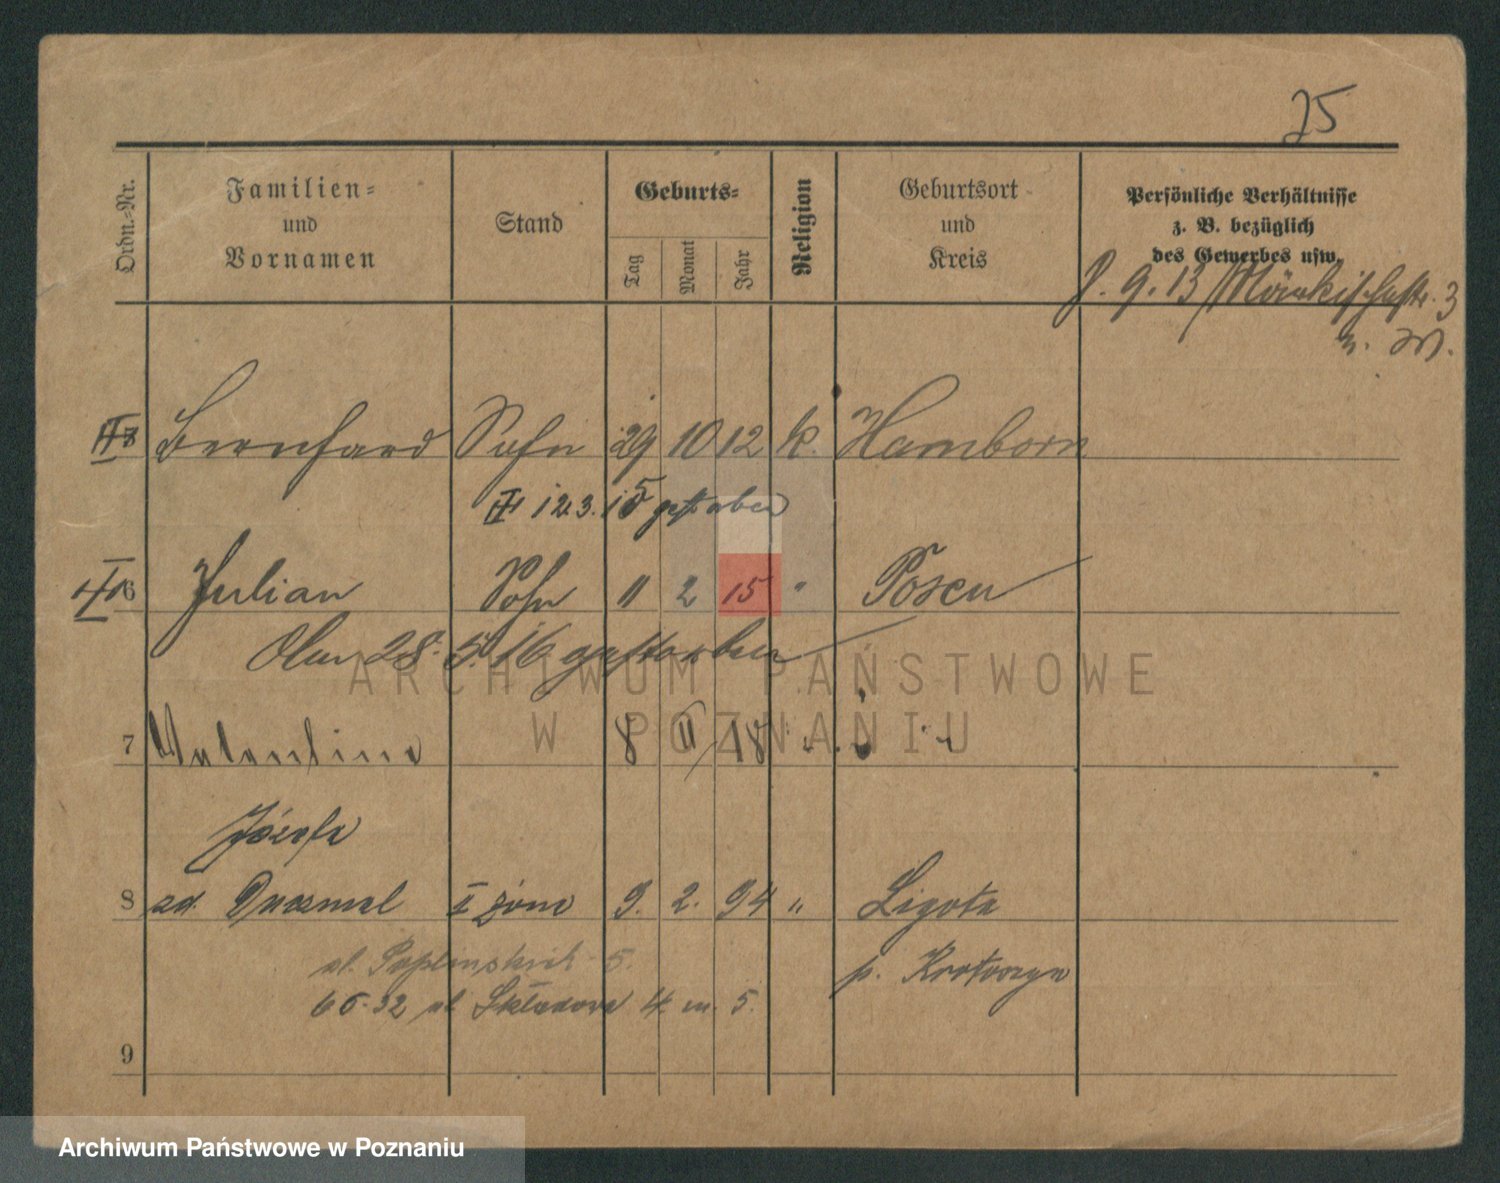 75
Ordn.-Nr.
Familien-
und
Vornamen
Stand
Geburts-
Tag
Monat
Jahr
Religion
Geburtsort
und
Kreis
Persönliche Verhältnisse
z. B. bezüglich
des Gewerbes usw.
9. 13 Märkischestr. 3
Bernhard Sohn 29 10 12 k. Hamborn
12.3.15 gestorben
6 Julian Sohn 11 2 15 " Posen
Am 28. 5. 16 gestorben
ARCHIWUM PAŃSTWOWE
W POZNANIU
7 Valentine 8 II 18
Józefa
8 zd. II żona 9. 2. 94 " Ligota
p. Krotoszyn
ul. 5.
ul. Składowa 4. m. 5.
9
Archiwum Państwowe w Poznaniu